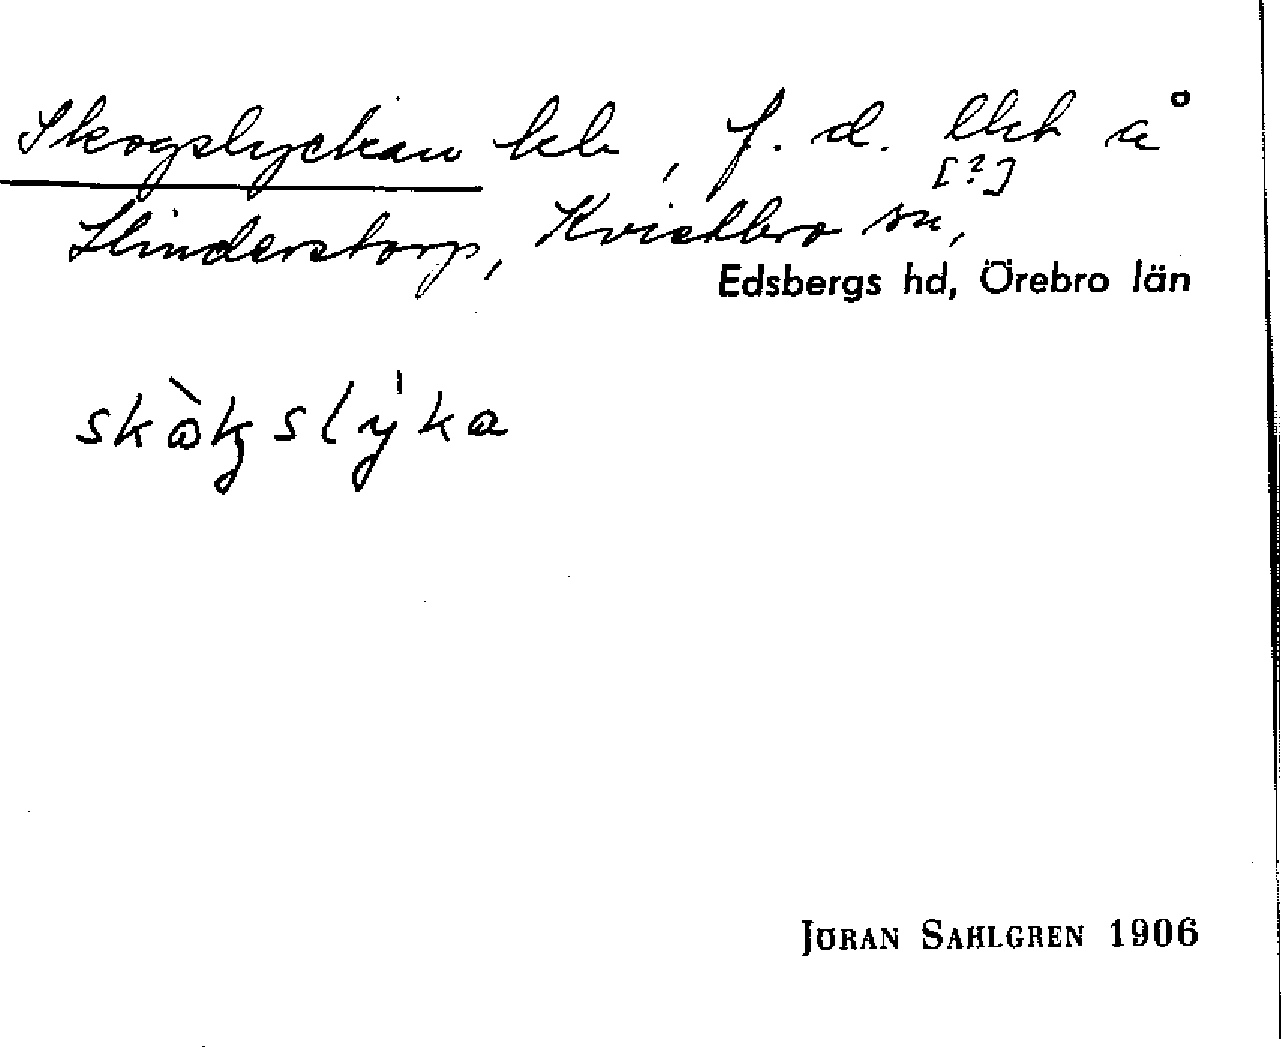 Skogslyckan hb, f. d. å
[?]
Hinderstorp, Kvistbro sn,
Edsbergs hd, Örebro län
skòkslýka
JÖRAN SAHLGREN 1906